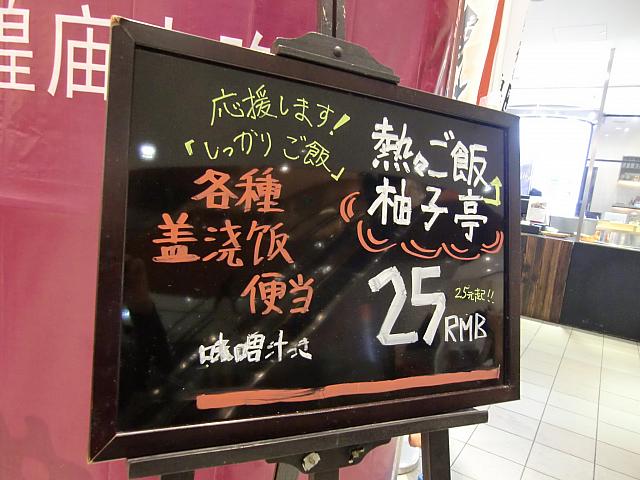 皇庙
応援します!
「しっかりご飯」
各種
盖浇饭
便当
味噌汁つき
熱々ご飯
柚子亭
25元起!!
25RMB